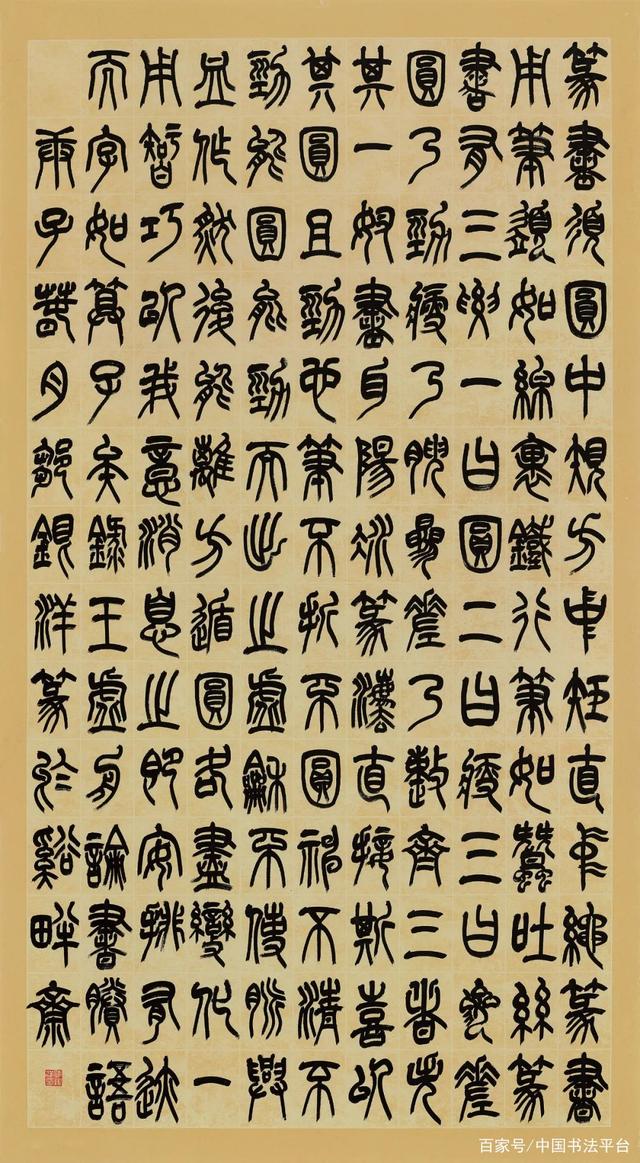 篆書須圓中規方中矩直中繩篆書
用筆須如綿裹鐵行筆如蠶吐絲篆
書有三要一曰圓二曰瘦三曰參差
圓乃勁瘦乃腴參差乃整齊三者失
其一奴書自陽冰篆法直接斯喜以
其圓且勁也筆不折不圓神不清不
勁能圓能勁而出之虛龢不使脈興
血作然後能離方遁圓各盡變化一
用智巧以我意消息之即安排有迹
而字如算子矣錄王虛舟論書賸語
庚子春月鄒銀洋篆於谿畔齋
百家号/中国书法平台